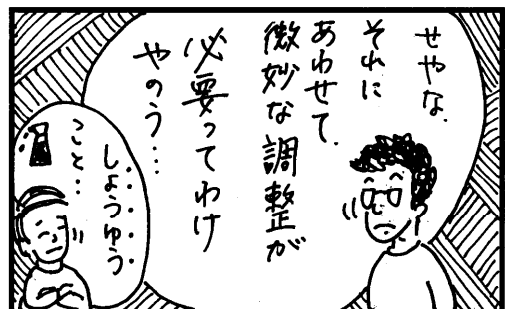 せやな.
それに
あわせて.
微妙な調整が
必要ってわけ
やのう…
しょうゆう
こと‥